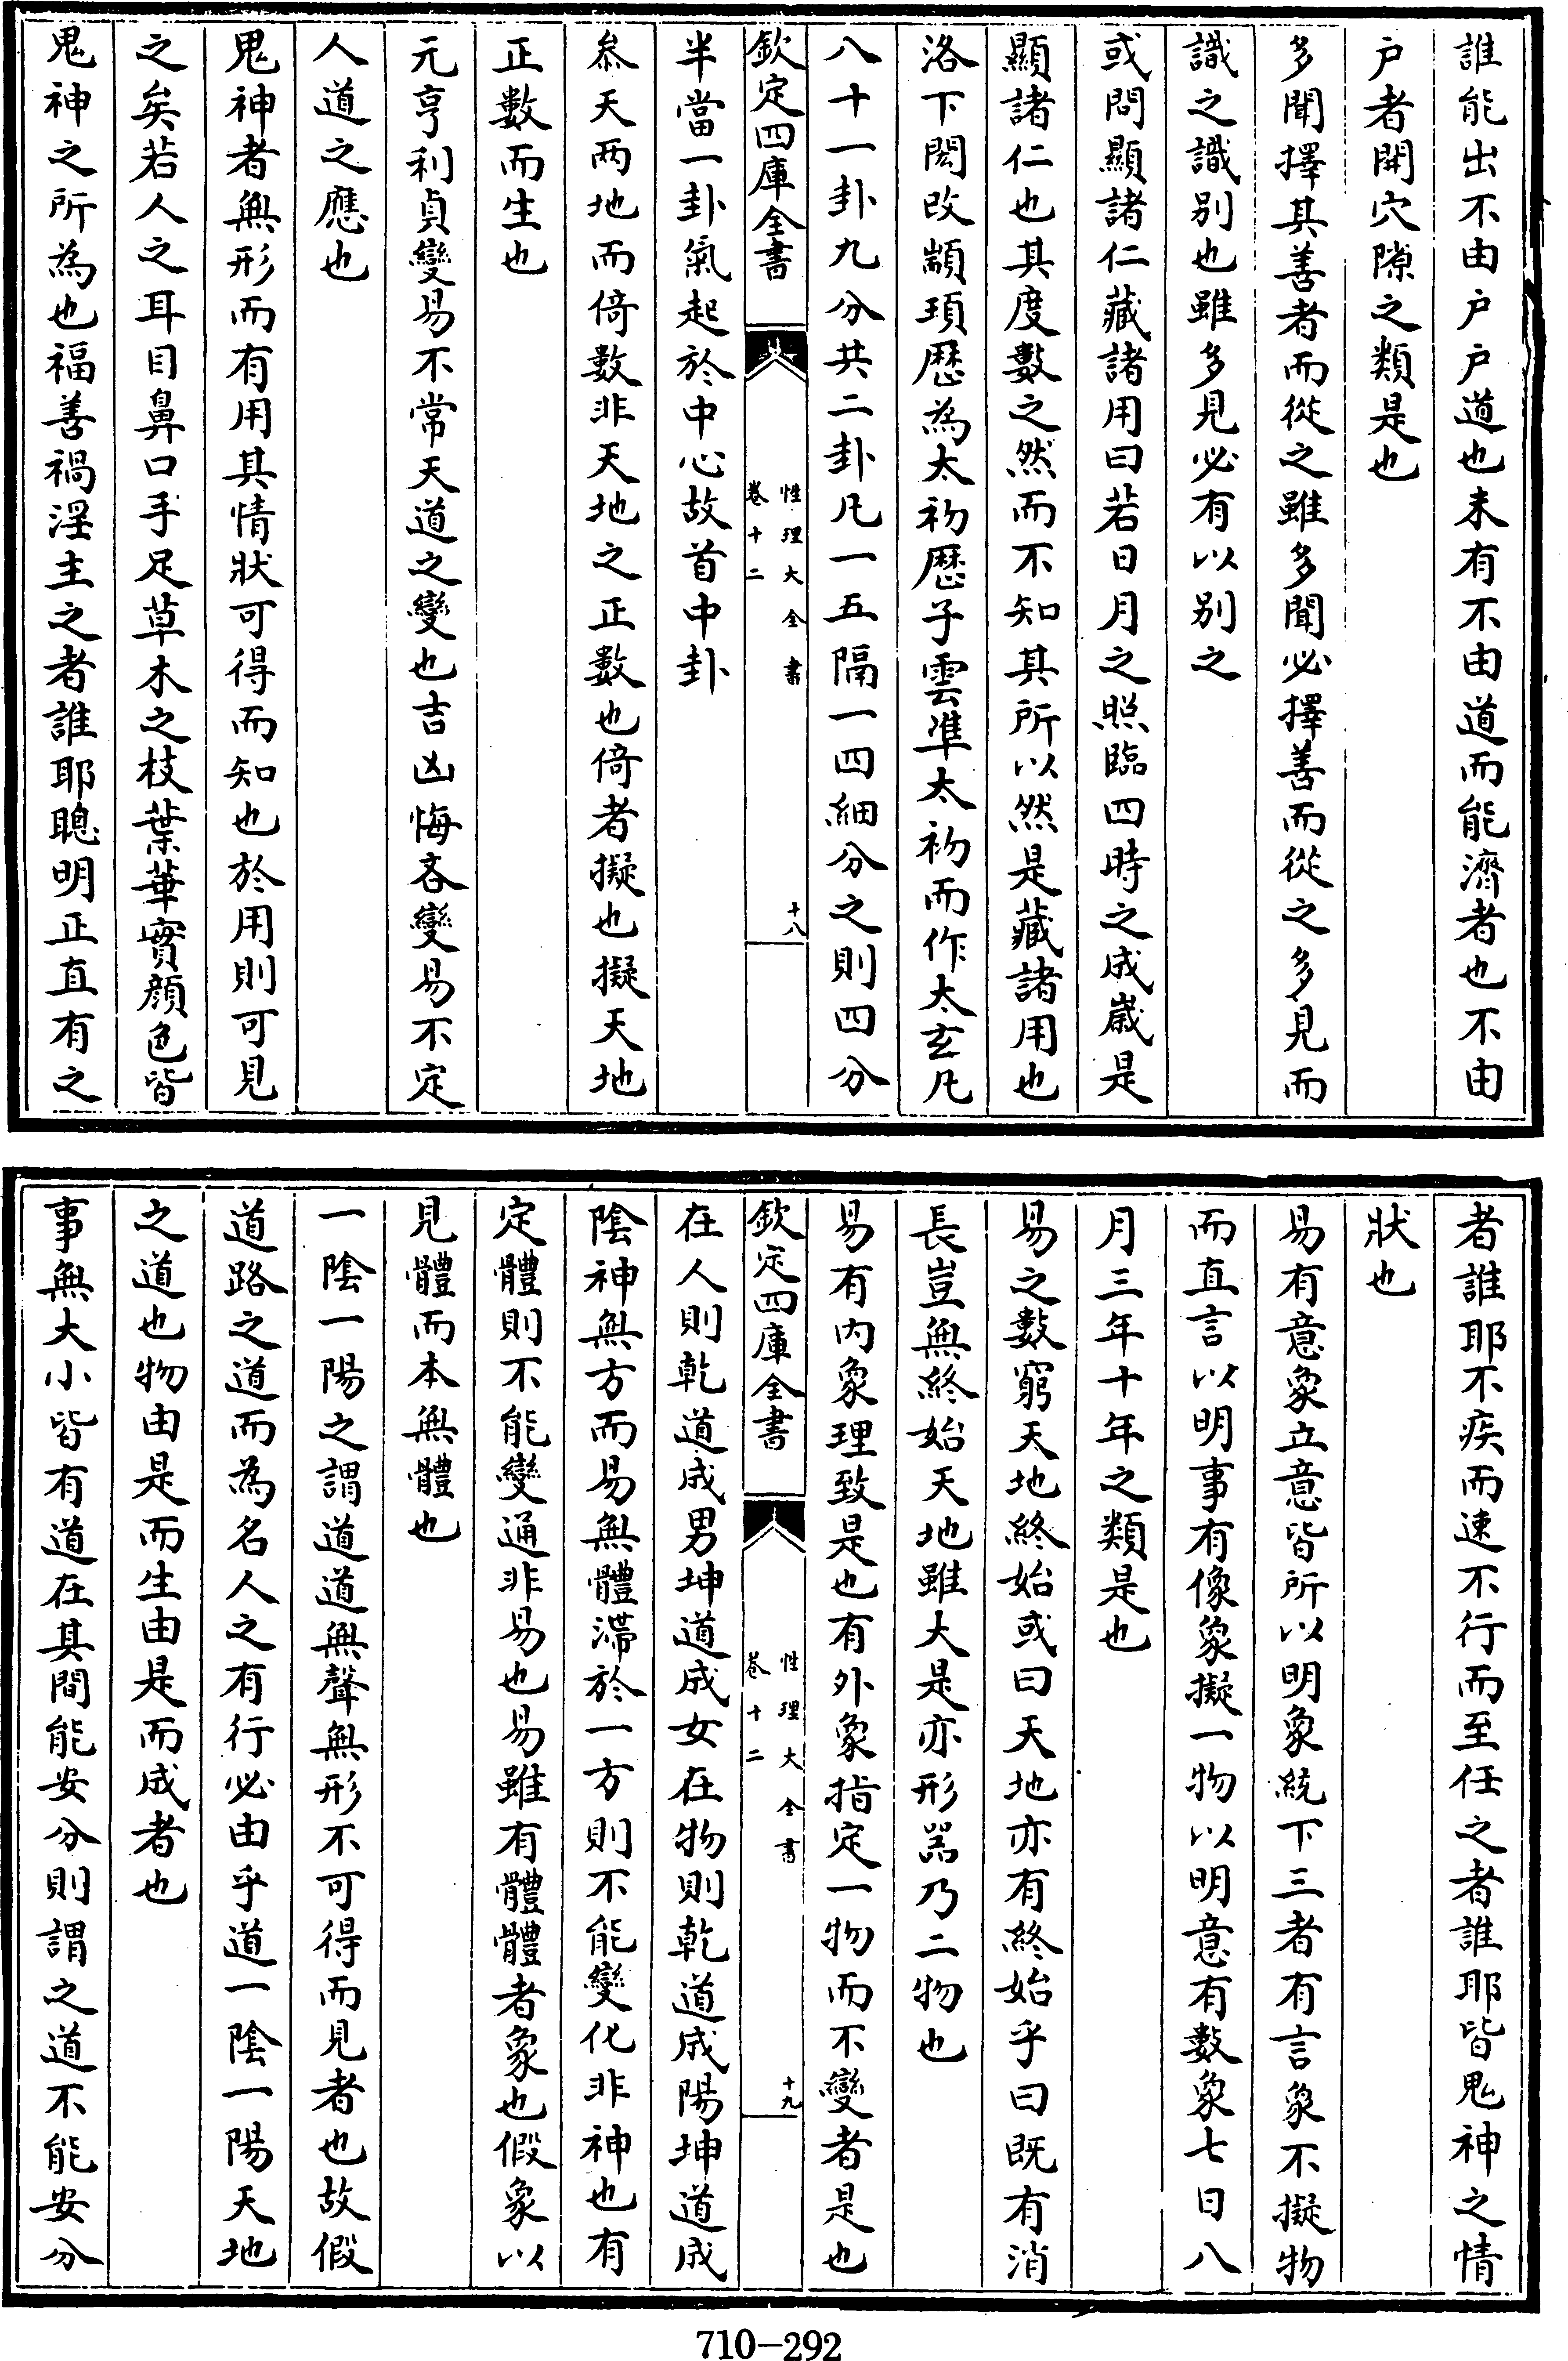 誰能出不由户户道也未有不由道而能濟者也不由
户者開穴隙之類是也
多聞擇其善者而從之雖多聞必擇善而從之多見而
識之識别也雖多見必有以别之
或問顯諸仁藏諸用曰若日月之照臨四時之成嵗是
顯諸仁也其度數之然而不知其所以然是藏諸用也
洛下閎改顓頊厯為太初厯子雲凖太初而作太玄凡
八十一卦九分共二卦凡一五隔一四細分之則四分
半當一卦氣起於中心故首中卦
欽定四庫全書
性理大全書
卷十二
十八
叅天兩地而倚數非天地之正數也倚者擬也擬天地
正數而生也
元亨利貞變易不常天道之變也吉凶悔吝變易不定
人道之應也
鬼神者無形而有用其情狀可得而知也於用則可見
之矣若人之耳目鼻口手足草木之枝葉華實顔色皆
鬼神之所為也福善禍淫主之者誰耶聰明正直有之
者誰耶不疾而速不行而至任之者誰耶皆鬼神之情
狀也
易有意象立意皆所以明象統下三者有言象不擬物
而直言以明事有像象擬一物以明意有數象七日八
月三年十年之類是也
易之數窮天地終始或曰天地亦有終始乎曰既有消
長豈無終始天地雖大是亦形器乃二物也
易有内象理致是也有外象指定一物而不變者是也
欽定四庫全書
性理大全書
卷十二
十九
在人則乾道成男坤道成女在物則乾道成陽坤道成
陰神無方而易無體滯於一方則不能變化非神也有
定體則不能變通非易也易雖有體體者象也假象以
見體而本無體也
一陰一陽之謂道道無聲無形不可得而見者也故假
道路之道而為名人之有行必由乎道一陰一陽天地
之道也物由是而生由是而成者也
事無大小皆有道在其間能安分則謂之道不能安分
710-292